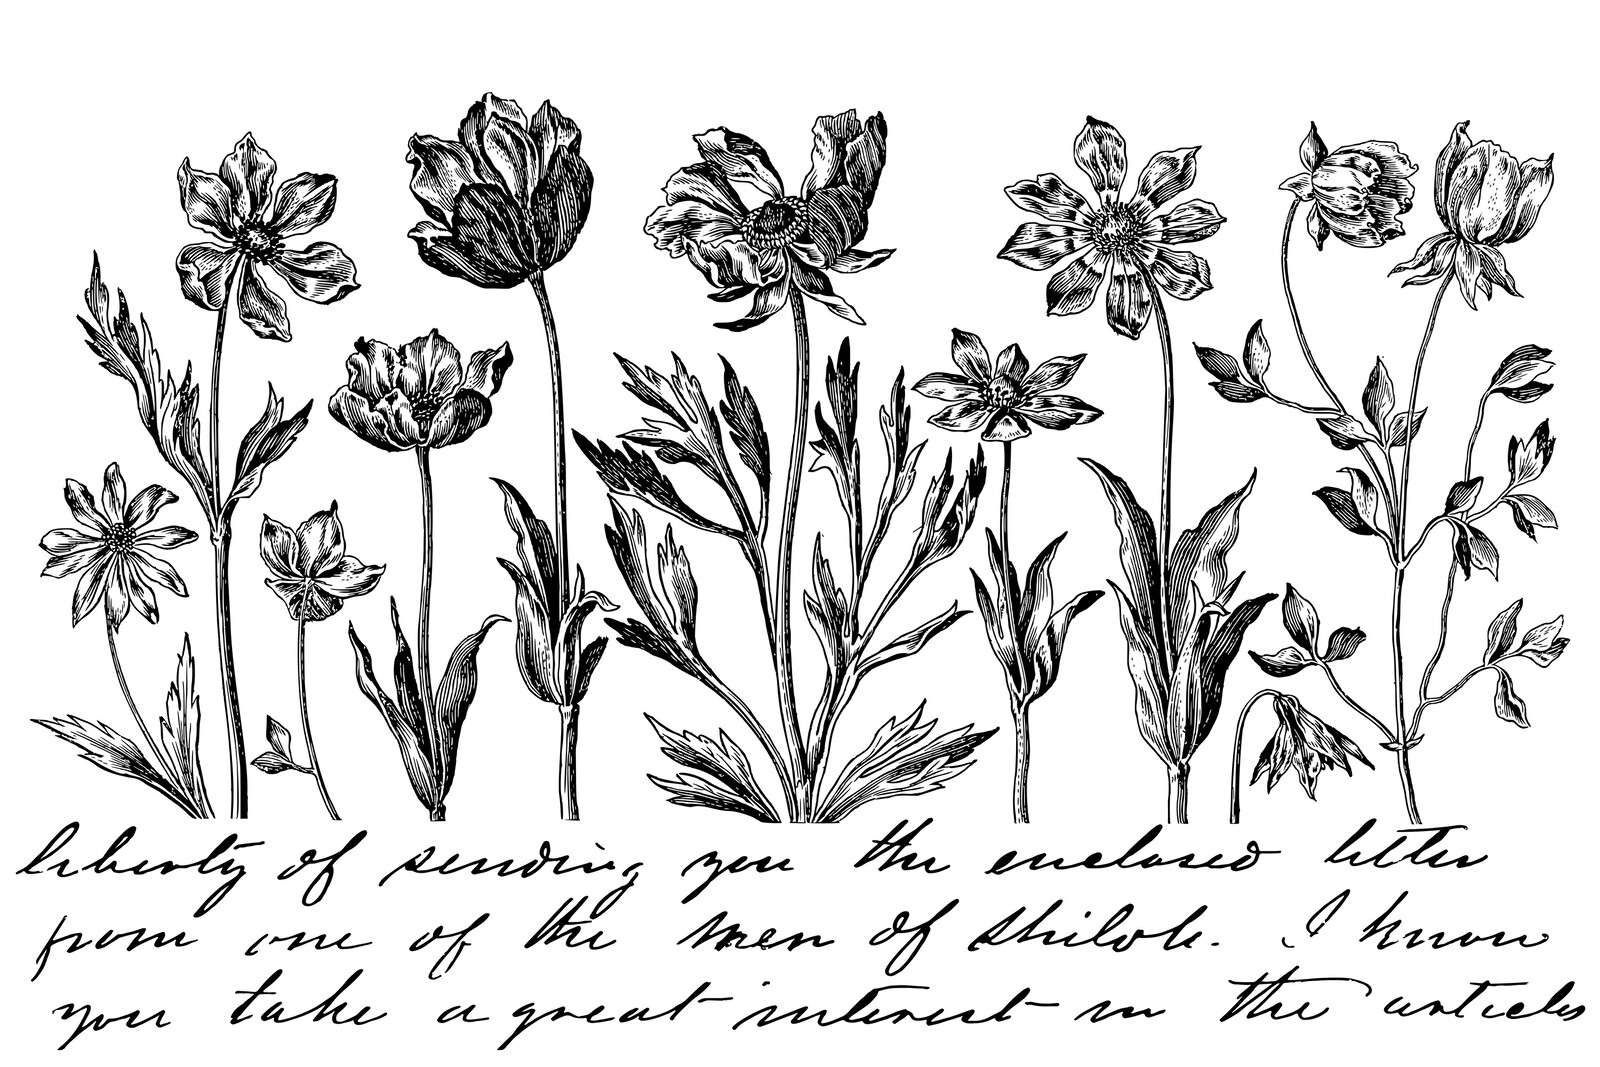 liberty of sending you the enclosed letter
from one of the men of Shiloh. I know
you take a great interest in the articles